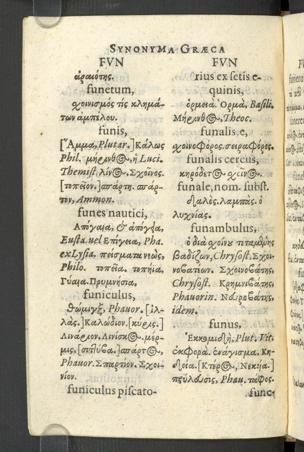 SYNONYMA GRÆCA
FVN
ἀραιότης.
funetum,
χοινισμός τις κλημά-
των ἀμπέλου.
funis,
[Ἅμμα, Plutar. Κάλως
Phil. μήρινθος, ἡ Luci.
Themist. λίνος. Σχοῖνος.
[τοπεῖον.] ἀπάρτη. σπάρ-
τον, Ammon.
funes nautici,
Ἀπόγαια, & ἀπόγεια,
Eusta. vel Ἐπίγεια, Pha.
ex Lysia. πείσματα νεώς,
Philo. τοπεῖα. τοπήϊα.
Πρυμνήσια,
funiculus,
θώμιγξ, Phavor. [ἰλ-
λάς.] Καλώδιον.
Λινάριον. Λινίσκος. μέρ-
μις,
Phavor. Σπαρτίον. Σχοι-
νίον.
funiculus piscato-
FVN
rius ex setis e-
quinis,
ὁρμειά. Ὁρμά, Basili.
Μήρινθος, Theoc.
funalis e,
χοινοφόρος. σειραφόρος.
funalis cereus,
κηροδετος σχῖνος.
funale, nom. subst.
δᾳλὸς, λαμπὰς. ὁ
λυχνίας.
funambulus,
ὁ διὰ σχοίνου πεταμένης
βαδίζων, Chrysost. Σχοι-
νοβατίων. Σχοινοβάτης,
Chrysost. Κρημνοβάτης,
Phavorin. Νευροβάτης,
idem.
funus,
Ἐκκομιδὴ, Plut. Vit.
ἐκφορά. ἐνάγισμα. Κη-
δεία. [Κτέρος, Νεκήα.]
τελεύτησις, Phav. τάφος.
func